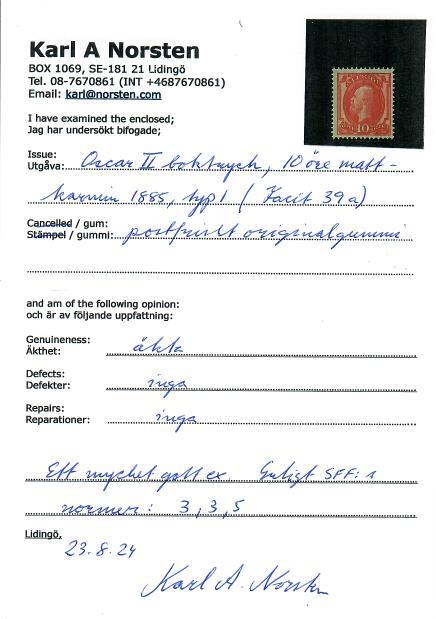 Karl A Norsten
BOX 1069, SE-181 21 Lidingö
Tel. 08-7670861 (INT +4687670861)
Email: karl@norsten.com
I have examined the enclosed;
Jag har undersökt bifogade;
Issue:
Utgåva: Oscar II boktryck, 10 öre matt-
karmin 1885, typ 1 (Facit 39a)
Cancelled / gum:
Stämpel / gummi: postfriskt originalgummi
and am of the following opinion:
och är av följande uppfattning:
Genuineness:
Äkthet: äkta
Defects:
Defekter: inga
Repairs:
Reparationer: inga
Ett mycket gott ex. Enligt SFF:s
normer: 3, 3, 5
Lidingö,
23.8.24
Karl A. Norsten
10